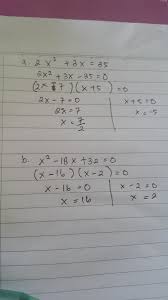 a. 2x² + 3x = 35
2x² + 3x - 35 = 0
(2x - 7)(x + 5) = 0
2x - 7 = 0 | x + 5 = 0
2x = 7 | x = -5
x = 7/2
b. x² - 18x + 32 = 0
(x - 16)(x - 2) = 0
x - 16 = 0 | x - 2 = 0
x = 16 | x = 2